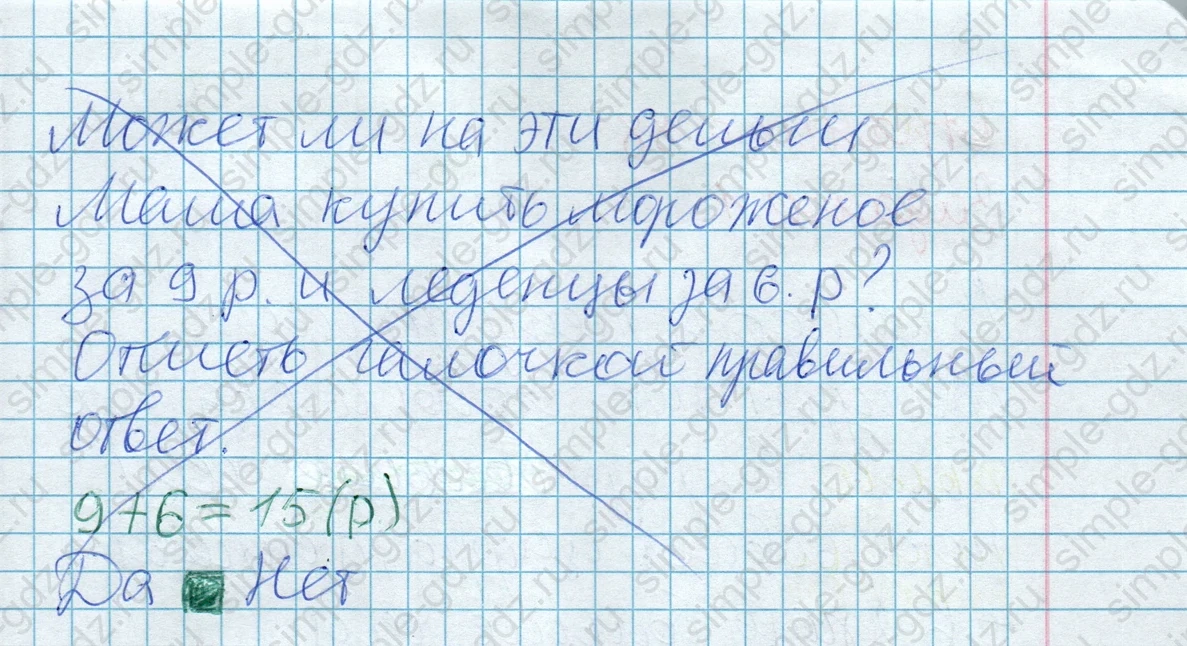 Может ли на эти деньги
Маша купить мороженое
за 9 р. и леденцы за 6. р?
Отметь галочкой правильный
ответ.
9+6=15(р)
Да Нет
simple-gdz.ru